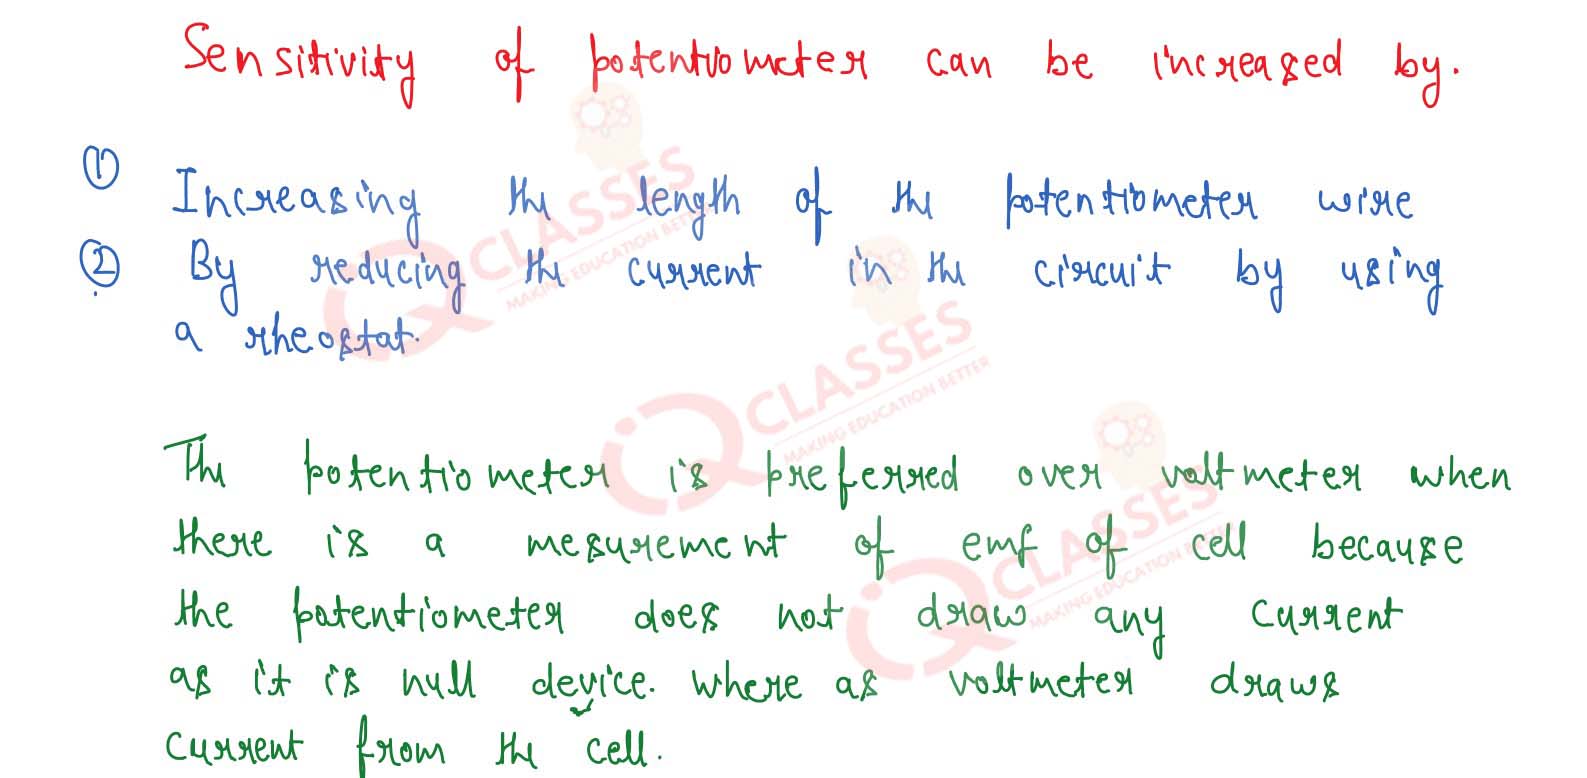 Sensitivity of potentiometer can be increased by.
① Increasing the length of the potentiometer wire
② By reducing the current in the circuit by using
a rheostat.
The potentiometer is preferred over voltmeter when
there is a mesurement of emf of cell because
the potentiometer does not draw any current
as it is null device. where as voltmeter draws
current from the cell.
iQ CLASSES
MAKING EDUCATION BETTER
iQ CLASSES
MAKING EDUCATION BETTER
iQ CLASSES
MAKING EDUCATION BETTER